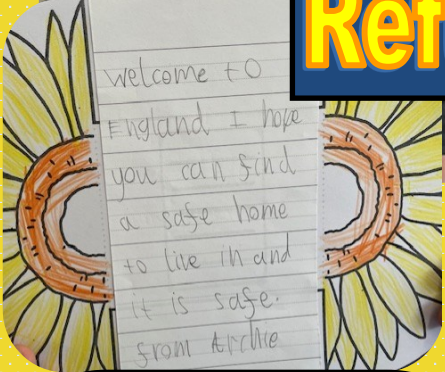 Ref
Welcome to
England I hope
you can find
a safe home
to live in and
it is safe.
from Archie